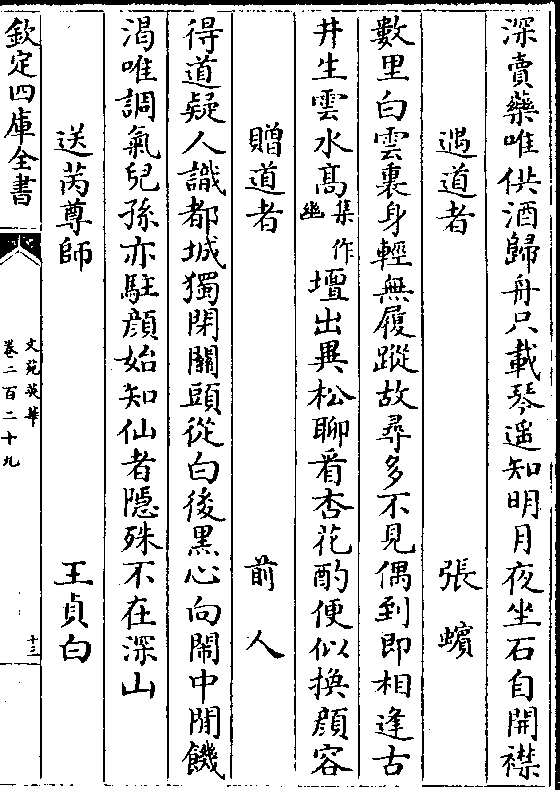 深賣藥唯供酒歸舟只載琴遥知明月夜坐石自開襟
遇道者　張蠙
數里白雲裏身輕無履蹤故尋多不見偶到即相逢古
井生雲水髙集作幽壇出異松聊看杏花酌便似換顔容
贈道者　前人
得道疑人識都城獨閉關頭從白後黒心向鬧中閒饑
渴唯調氣兒孫亦駐顔始知仙者隱殊不在深山
送芮尊師　王貞白
欽定四庫全書
文苑英華
卷二百二十九
十三